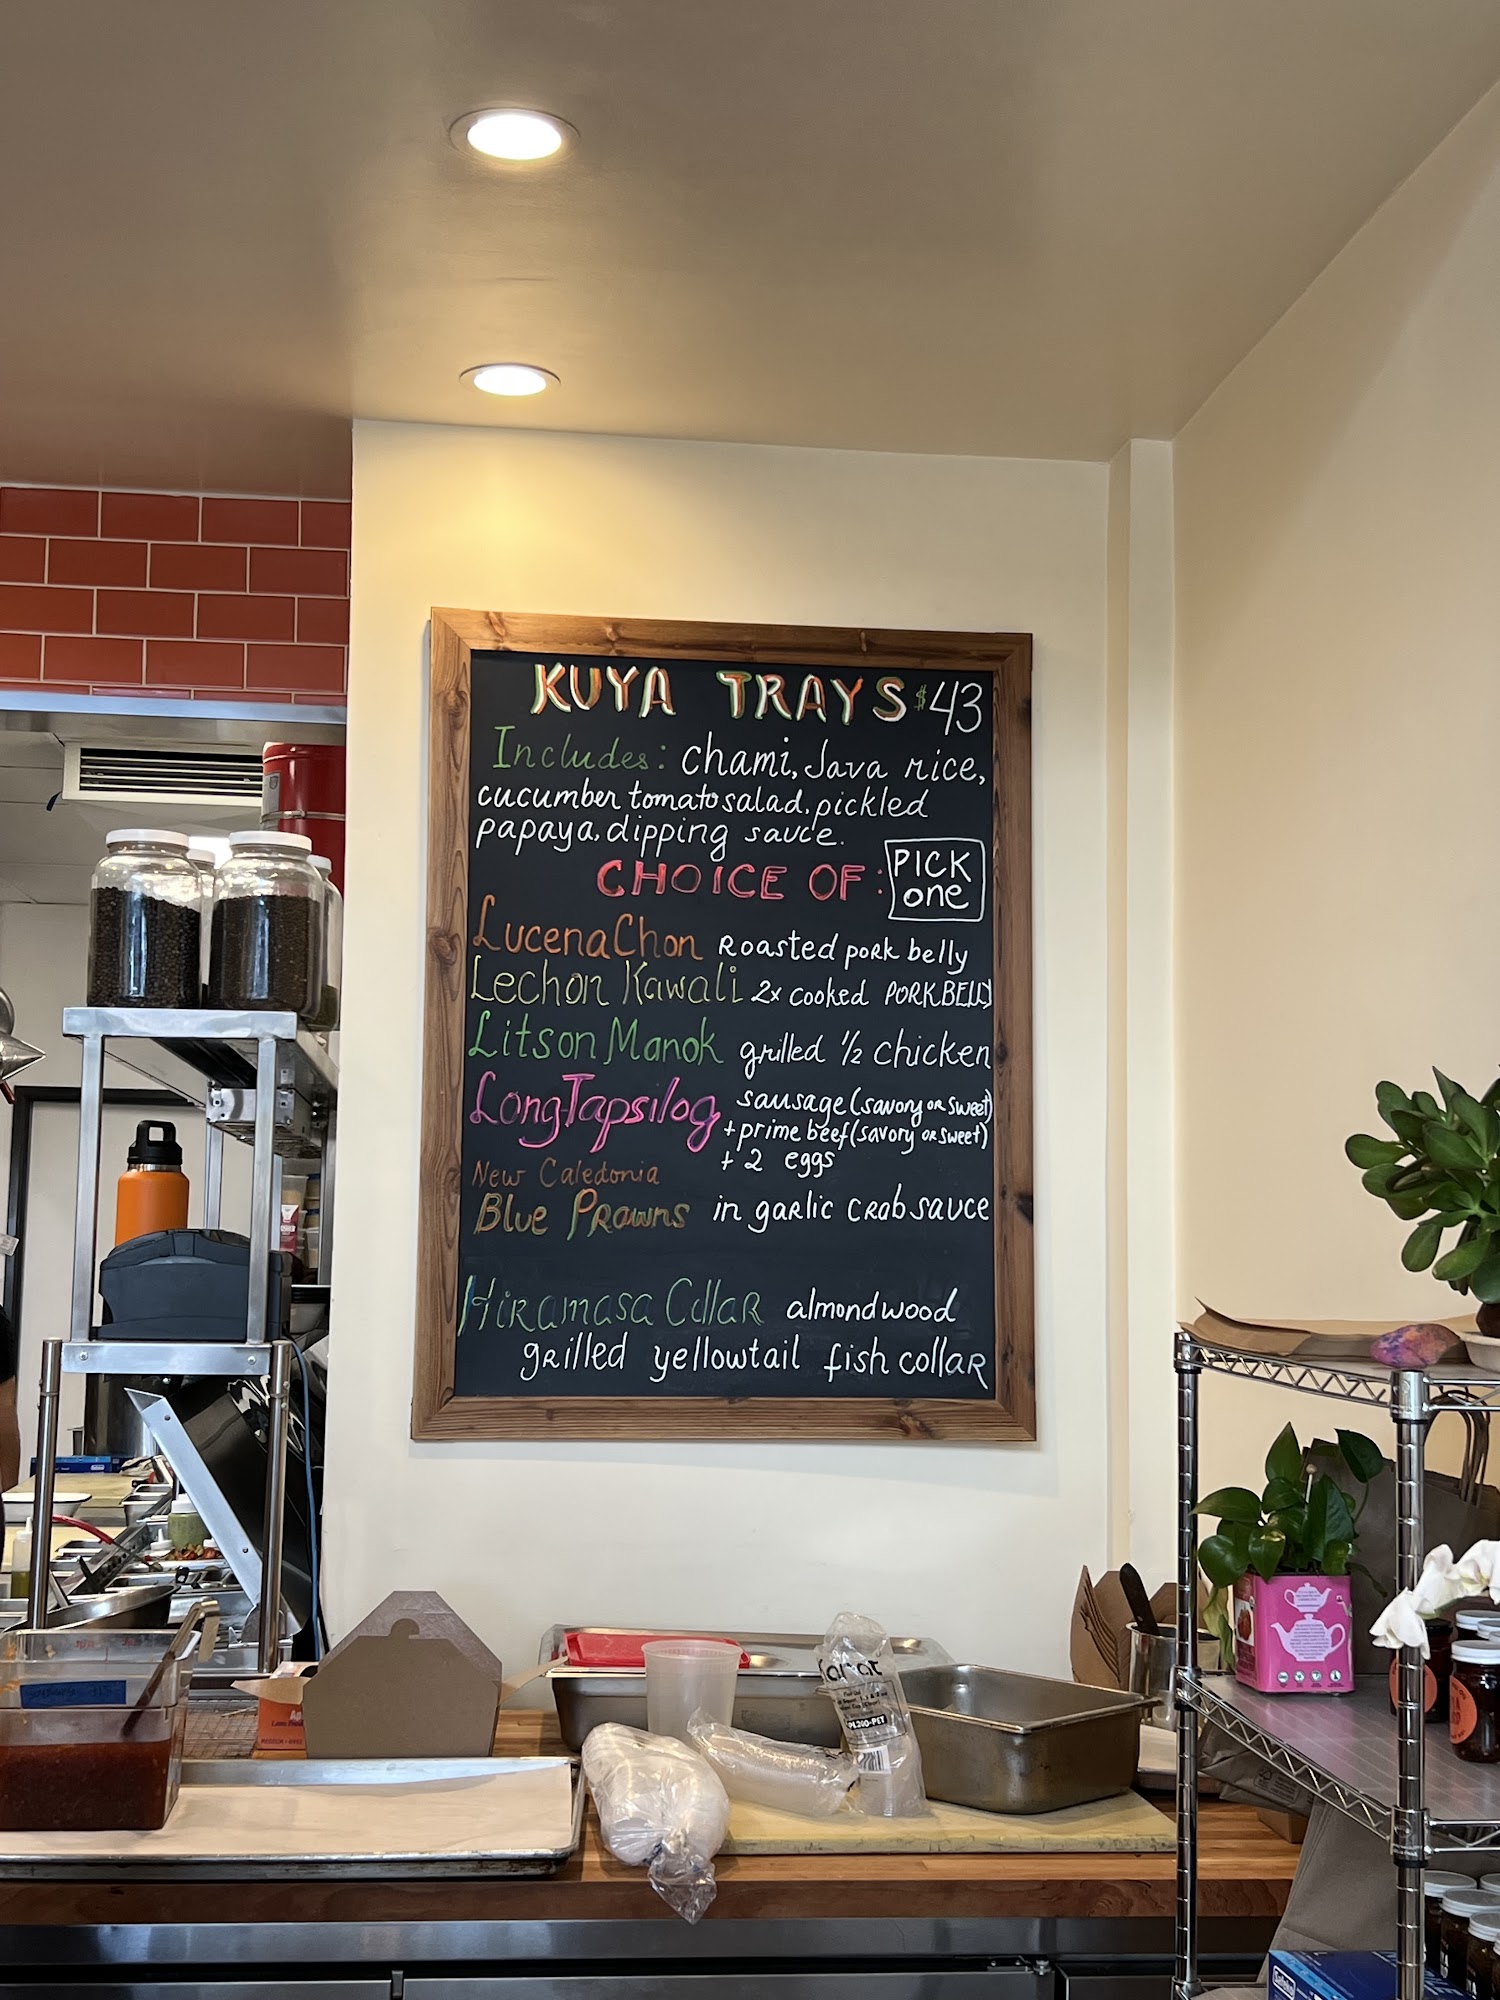 KUYA TRAYS $43
Includes: chami, Java rice,
cucumber tomato salad, pickled
papaya, dipping sauce.
CHOICE OF: PICK
one
LucenaChon Roasted pork belly
Lechon Kawali 2x cooked PORKBELLY
Litson Manok grilled 1/2 chicken
LongTapsilog sausage (savory or sweet)
+ prime beef (savory or sweet)
+ 2 eggs
New Caledonia
Blue Prawns in garlic crab sauce
Hiramasa Collar almondwood
grilled yellowtail fish collar
Karat
PK200-PET